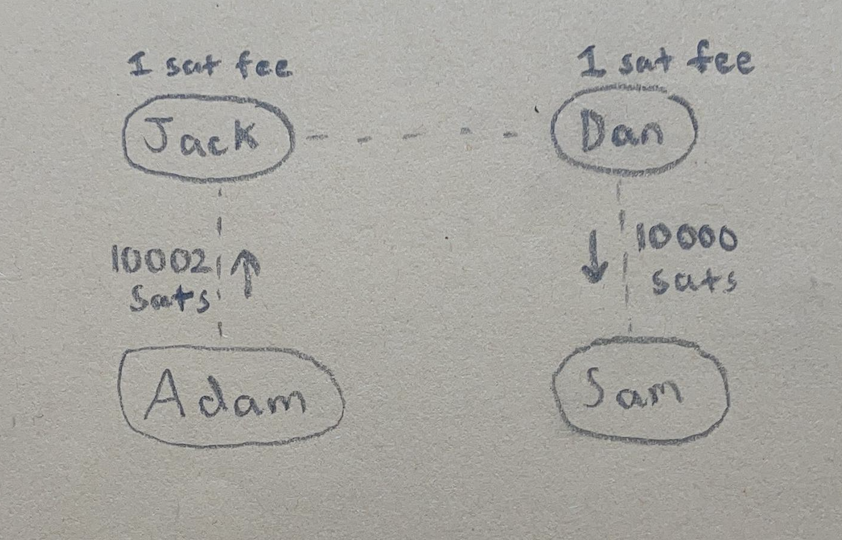 1 sat fee
1 sat fee
Jack
Dan
10002
sats
10000
sats
Adam
Sam